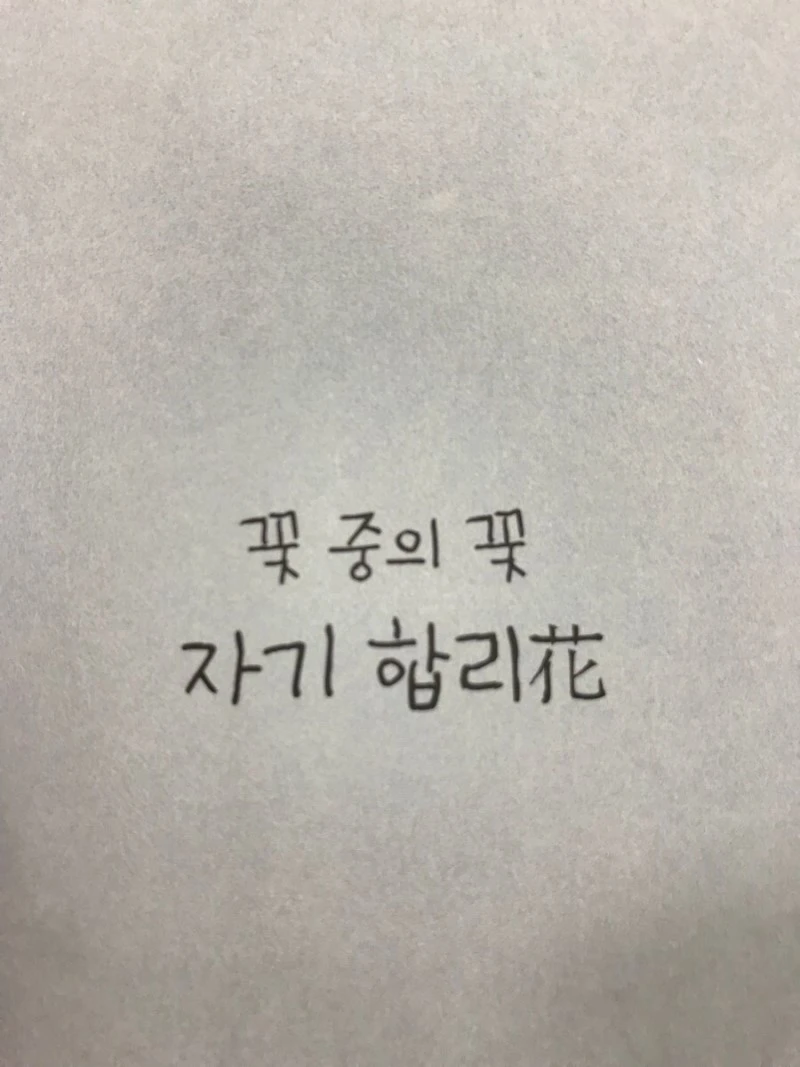 꽃 중의 꽃
자기 합리花